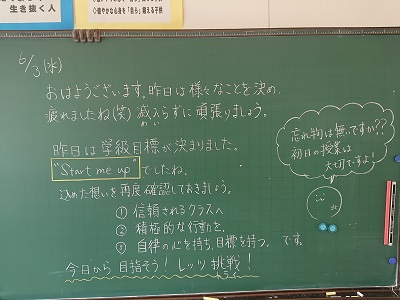 生き抜く人
◇健やかな心身を「自ら」鍛える子供
6/3(水)
おはようございます。昨日は様々なことを決め、
疲れましたね(笑) 滅入らずに頑張りましょう。
めい
昨日は学級目標が決まりました。
"Start me up"でしたね。
込めた想いを再度確認しておきましょう。
① 信頼されるクラスへ
② 積極的な行動を、
③ 自律の心を持ち、目標を持つ。です。
今日から目指そう！レッツ挑戦！
トライ
忘れ物は無いですか??
初日の授業は
大切ですよ！